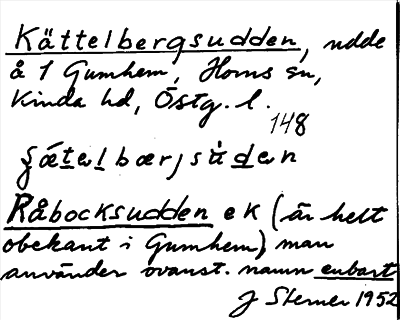 Kättelbergsudden, udde
å 1 Gumhem, Horns sn,
Kinda hd, Östg. l.
148
Råbocksudden ek (är helt
obekant i Gumhem) man
använder ovanst. namn enbart
J Sterner 1952